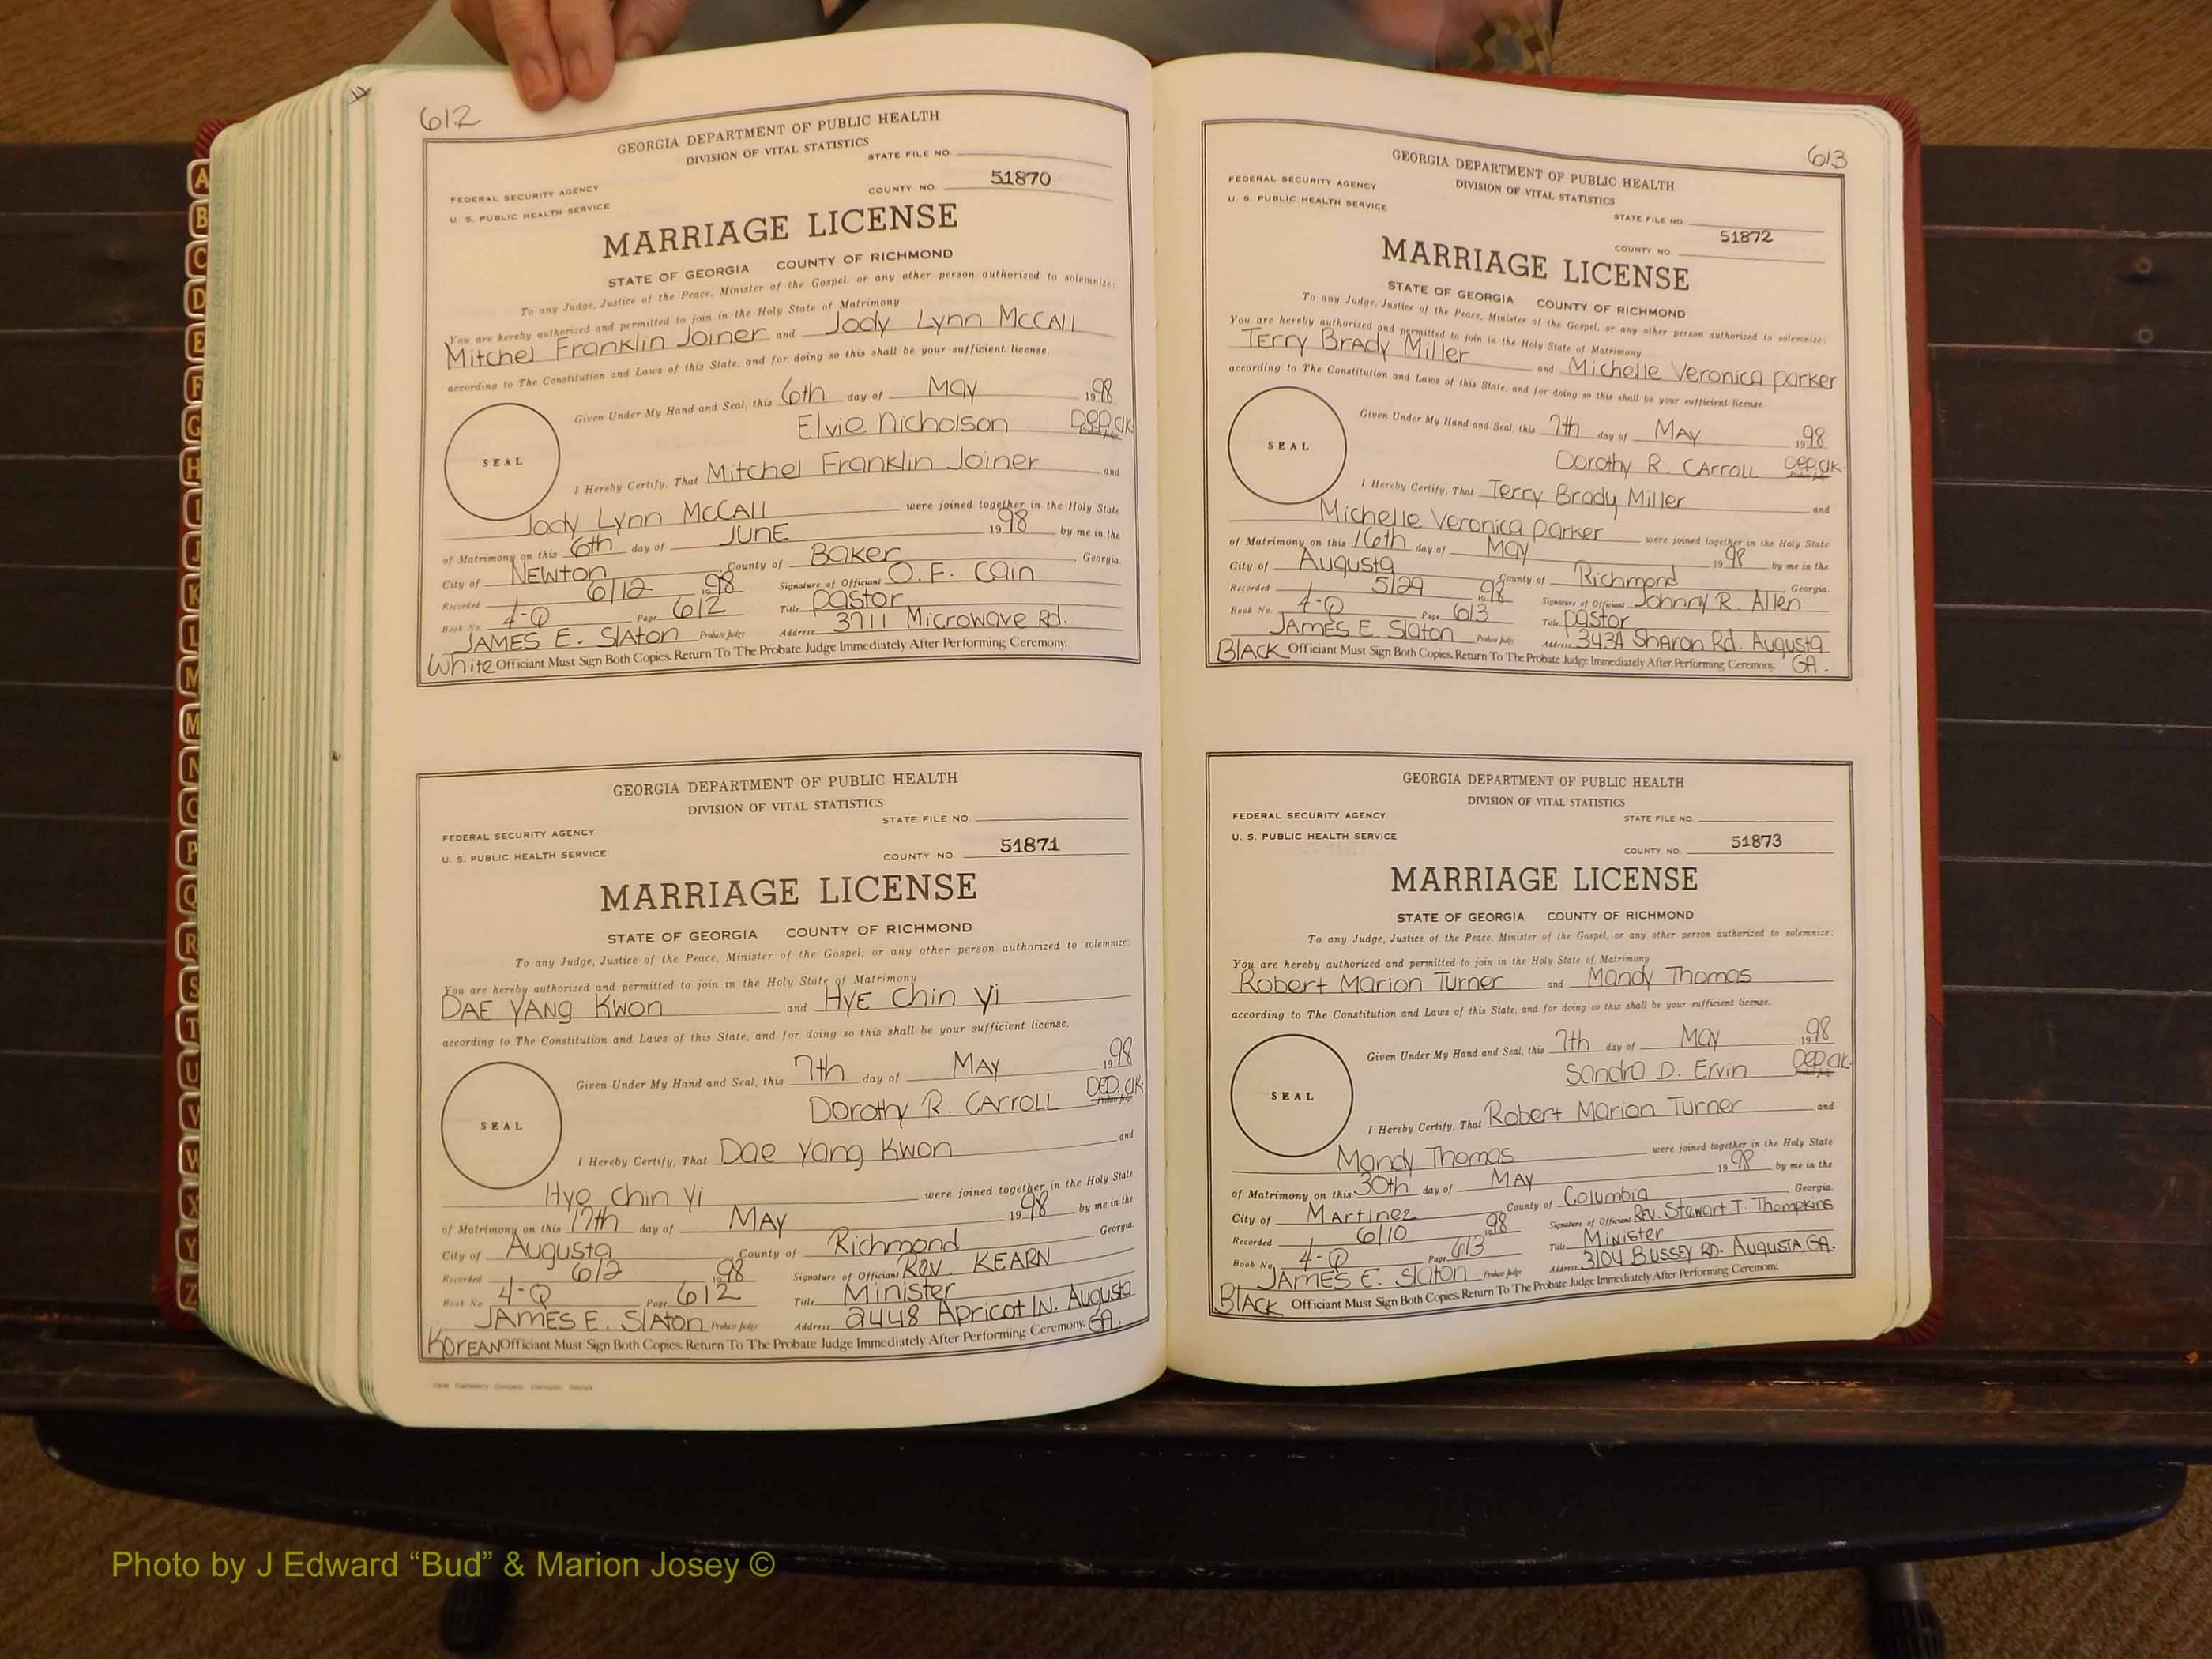 A
B
C
D
E
F
G
H
I
J
K
L
M
M
N
O
P
Q
R
S
T
U
V
W
X
Y
Z
612
GEORGIA DEPARTMENT OF PUBLIC HEALTH
DIVISION OF VITAL STATISTICS
STATE FILE NO.
FEDERAL SECURITY AGENCY
COUNTY NO. 51870
U. S. PUBLIC HEALTH SERVICE
MARRIAGE LICENSE
STATE OF GEORGIA COUNTY OF RICHMOND
To any Judge, Justice of the Peace, Minister of the Gospel, or any other person authorized to solemnize:
You are hereby authorized and permitted to join in the Holy State of Matrimony
Mitchel Franklin Joiner and Jody Lynn McCall
according to The Constitution and Laws of this State, and for doing so this shall be your sufficient license.
Given Under My Hand and Seal, this 6th day of May 1998
Elvie Nicholson Dep. Clk
SEAL
I Hereby Certify, That Mitchel Franklin Joiner and
Jody Lynn McCall were joined together in the Holy State
of Matrimony on this 6th day of June 1998 by me in the
City of Newton County of Baker, Georgia.
Recorded 6/12 1998 Signature of Official O. F. Cain
Book No. 4-Q Page 612 Title Pastor
James E. Slaton Probate Judge Address 3711 Microwave Rd.
White Officiant Must Sign Both Copies. Return To The Probate Judge Immediately After Performing Ceremony.
GEORGIA DEPARTMENT OF PUBLIC HEALTH
DIVISION OF VITAL STATISTICS
STATE FILE NO.
FEDERAL SECURITY AGENCY
U. S. PUBLIC HEALTH SERVICE
COUNTY NO. 51871
MARRIAGE LICENSE
STATE OF GEORGIA COUNTY OF RICHMOND
To any Judge, Justice of the Peace, Minister of the Gospel, or any other person authorized to solemnize:
You are hereby authorized and permitted to join in the Holy State of Matrimony
Dae Yang Kwon and Hye Chin Yi
according to The Constitution and Laws of this State, and for doing so this shall be your sufficient license.
Given Under My Hand and Seal, this 7th day of May 1998
Dorothy R. Carroll Dep. Clk
SEAL
I Hereby Certify, That Dae Yang Kwon and
Hye Chin Yi were joined together in the Holy State
of Matrimony on this 17th day of May 1998 by me in the
City of Augusta County of Richmond, Georgia.
Recorded 6/2 1998 Signature of Official Rev. Kearn
Book No. 4-Q Page 612 Title Minister
James E. Slaton Probate Judge Address 2448 Apricot Ln. Augusta GA.
Korean Officiant Must Sign Both Copies. Return To The Probate Judge Immediately After Performing Ceremony.
613
GEORGIA DEPARTMENT OF PUBLIC HEALTH
DIVISION OF VITAL STATISTICS
FEDERAL SECURITY AGENCY
U. S. PUBLIC HEALTH SERVICE
STATE FILE NO.
COUNTY NO. 51872
MARRIAGE LICENSE
STATE OF GEORGIA COUNTY OF RICHMOND
To any Judge, Justice of the Peace, Minister of the Gospel, or any other person authorized to solemnize:
You are hereby authorized and permitted to join in the Holy State of Matrimony
Terry Brady Miller and Michelle Veronica Parker
according to The Constitution and Laws of this State, and for doing so this shall be your sufficient license.
Given Under My Hand and Seal, this 7th day of May 1998
Dorothy R. Carroll Dep. Clk.
SEAL
I Hereby Certify, That Terry Brady Miller and
Michelle Veronica Parker were joined together in the Holy State
of Matrimony on this 16th day of May 1998 by me in the
City of Augusta County of Richmond Georgia.
Recorded 5/29 1998 Signature of Official Johnny R. Allen
Book No. 4-Q Page 613 Title Pastor
James E. Slaton Probate Judge Address 3434 Sharon Rd. Augusta GA.
Black Officiant Must Sign Both Copies. Return To The Probate Judge Immediately After Performing Ceremony.
GEORGIA DEPARTMENT OF PUBLIC HEALTH
DIVISION OF VITAL STATISTICS
FEDERAL SECURITY AGENCY
STATE FILE NO.
U. S. PUBLIC HEALTH SERVICE
COUNTY NO. 51873
MARRIAGE LICENSE
STATE OF GEORGIA COUNTY OF RICHMOND
To any Judge, Justice of the Peace, Minister of the Gospel, or any other person authorized to solemnize:
You are hereby authorized and permitted to join in the Holy State of Matrimony
Robert Marion Turner and Mandy Thomas
according to The Constitution and Laws of this State, and for doing so this shall be your sufficient license.
Given Under My Hand and Seal, this 7th day of May 1998
Sandra D. Ervin Dep. Clk.
SEAL
I Hereby Certify, That Robert Marion Turner and
Mandy Thomas were joined together in the Holy State
of Matrimony on this 30th day of May 1998 by me in the
City of Martinez County of Columbia Georgia.
Recorded 6/10 1998 Signature of Official Rev. Stewart T. Thompkins
Book No. 4-Q Page 613 Title Minister
James E. Slaton Probate Judge Address 3104 Bussey Rd. Augusta, GA.
Black Officiant Must Sign Both Copies. Return To The Probate Judge Immediately After Performing Ceremony.
Photo by J Edward “Bud” & Marion Josey ©